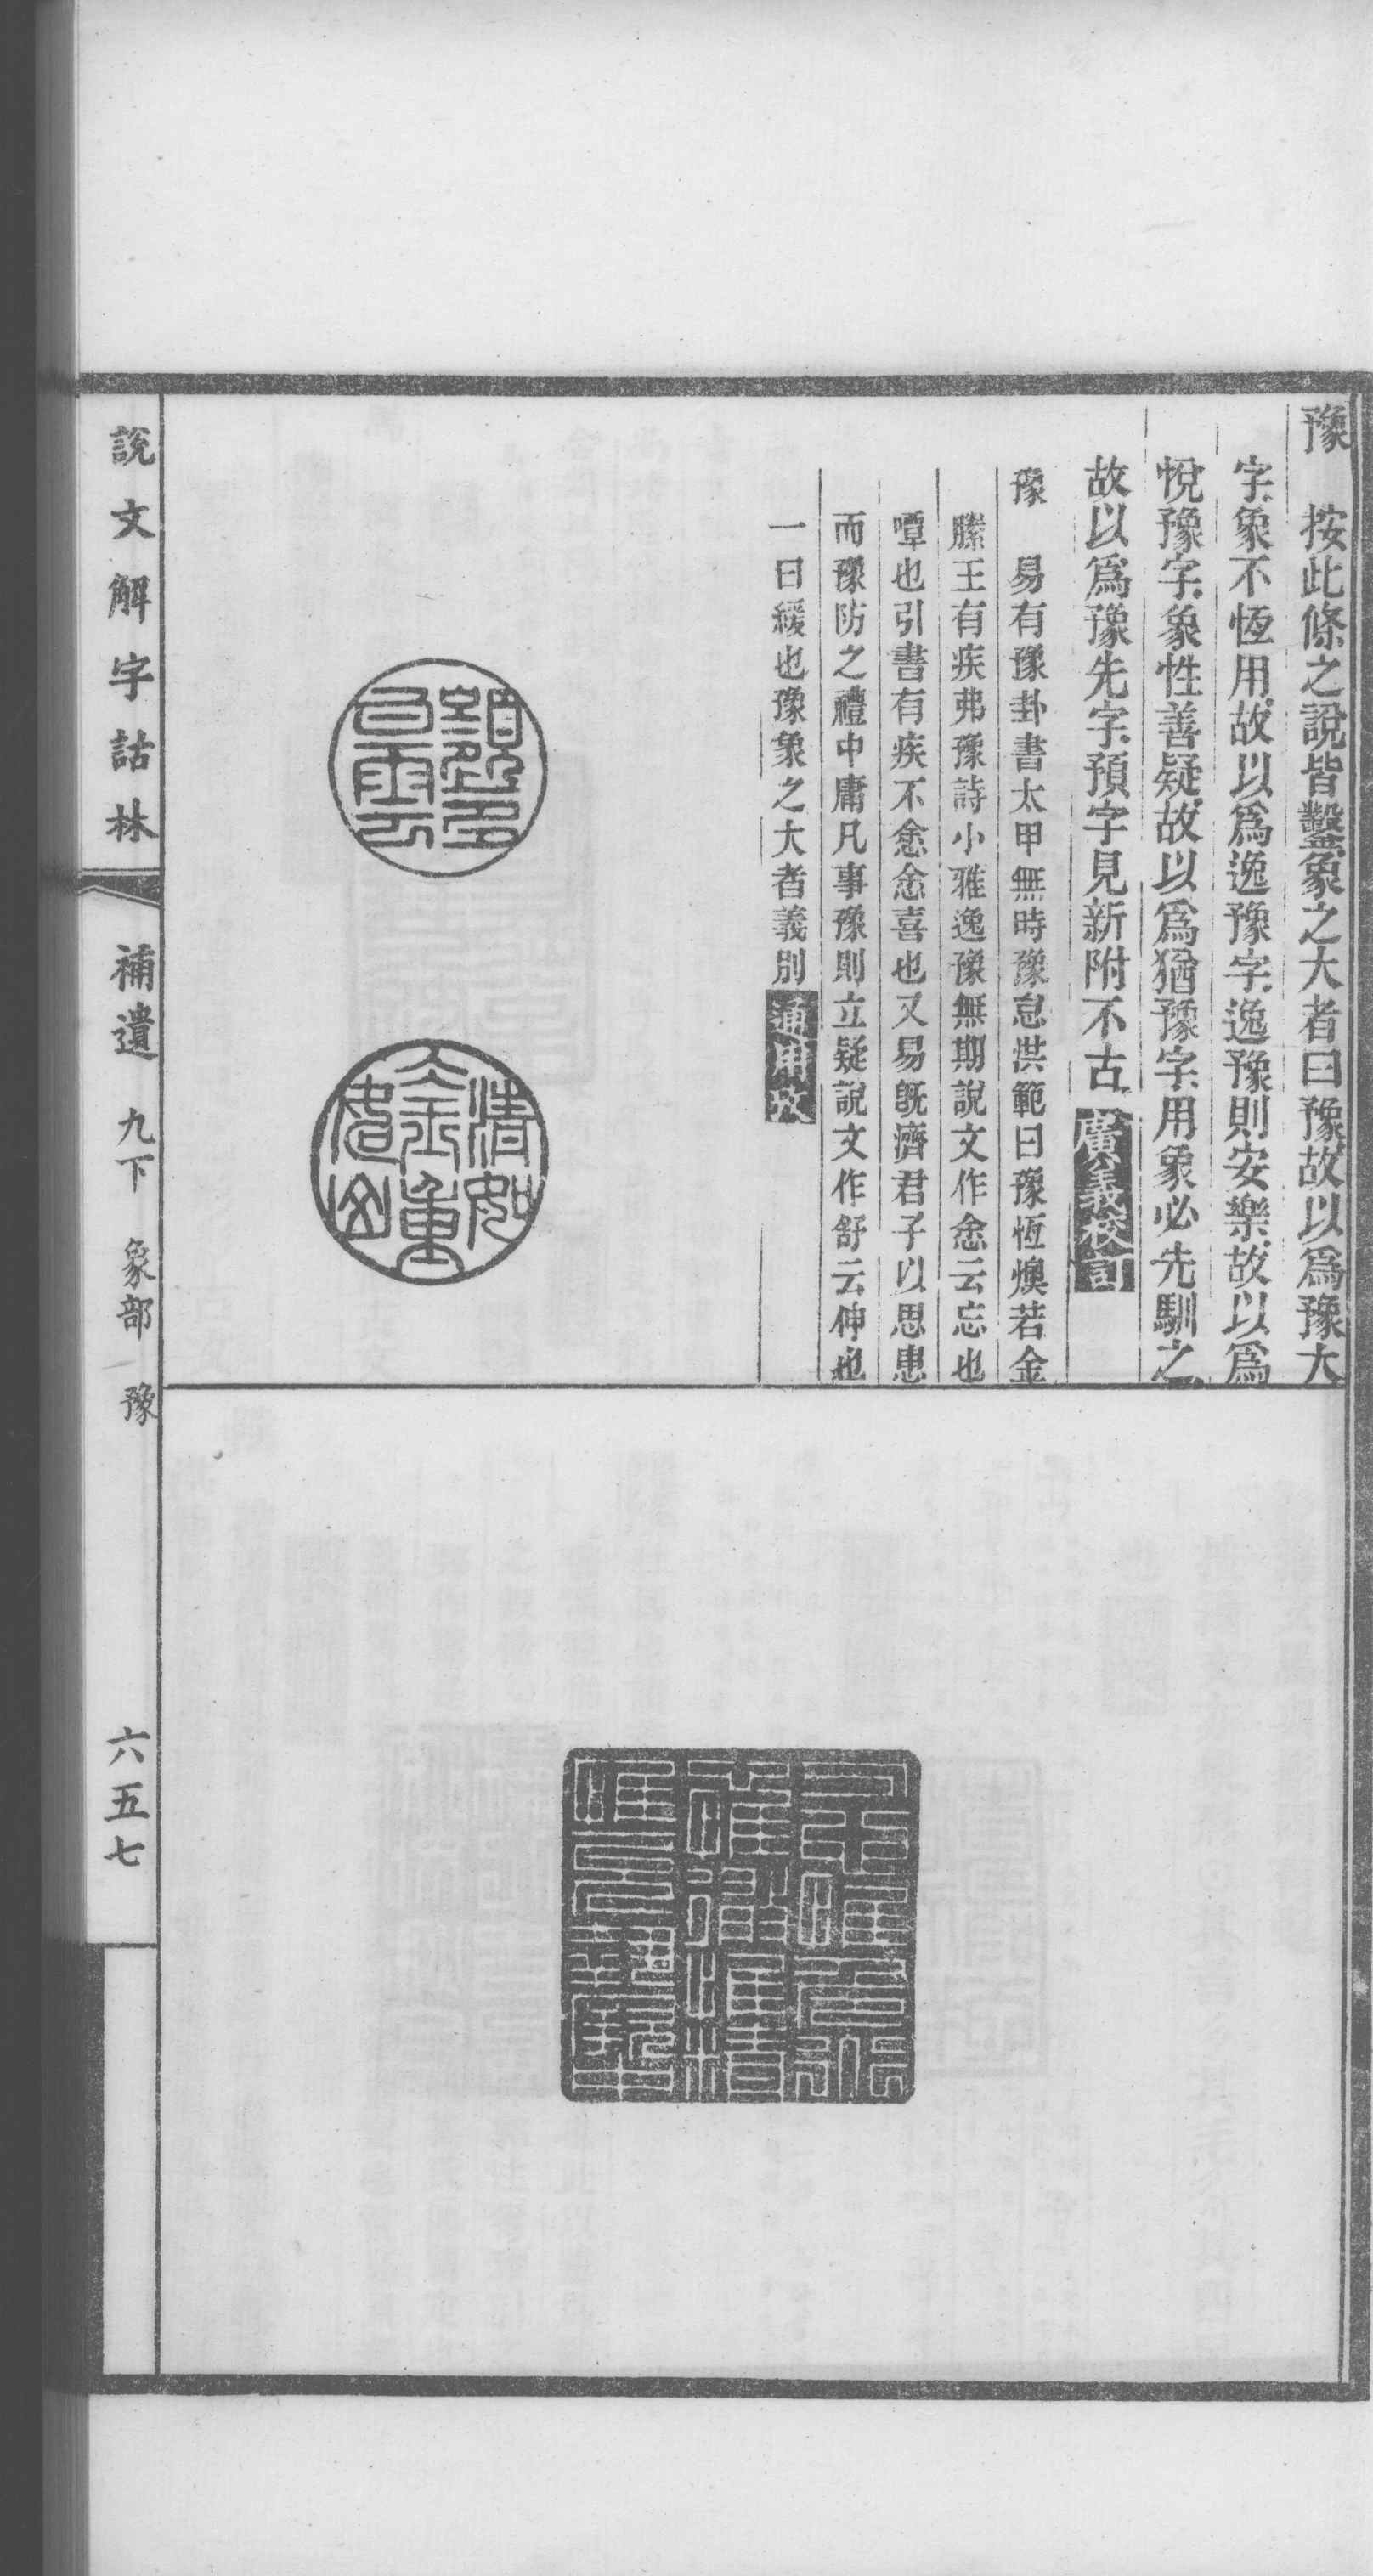 豫　按此條之說皆鑿象之大者曰豫故以爲豫大
字象不恆用故以爲逸豫字逸豫則安樂故以爲
悅豫字象性善疑故以爲猶豫字用象必先馴之
故以爲豫先字預字見新附不古　廣義校訂
豫　易有豫卦書太甲無時豫怠洪範曰豫恆燠若金
縢王有疾弗豫詩小雅逸豫無期說文作悆云忘也
嘾也引書有疾不悆悆喜也又易旣濟君子以思患
而豫防之禮中庸凡事豫則立疑說文作舒云伸也
一曰緩也豫象之大者義別　通用攷
說文解字詁林　補遺　九下　象部　豫　六五七